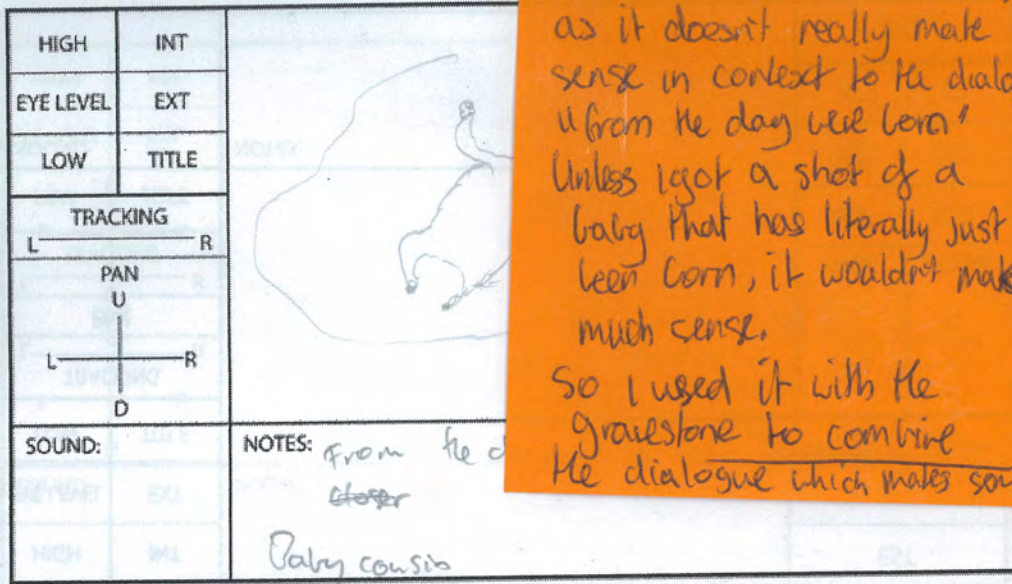 HIGH INT
EYE LEVEL EXT
LOW TITLE
TRACKING
L R
PAN
U
L R
D
SOUND:
NOTES: From the d
closer
Baby cousin
as it doesn't really make
sense in context to the dialo
"from the day we're born"
Unless I got a shot of a
baby that has literally just
been born, it wouldn't make
much sense.
So I used it with the
gravestone to combine
the dialogue which makes som